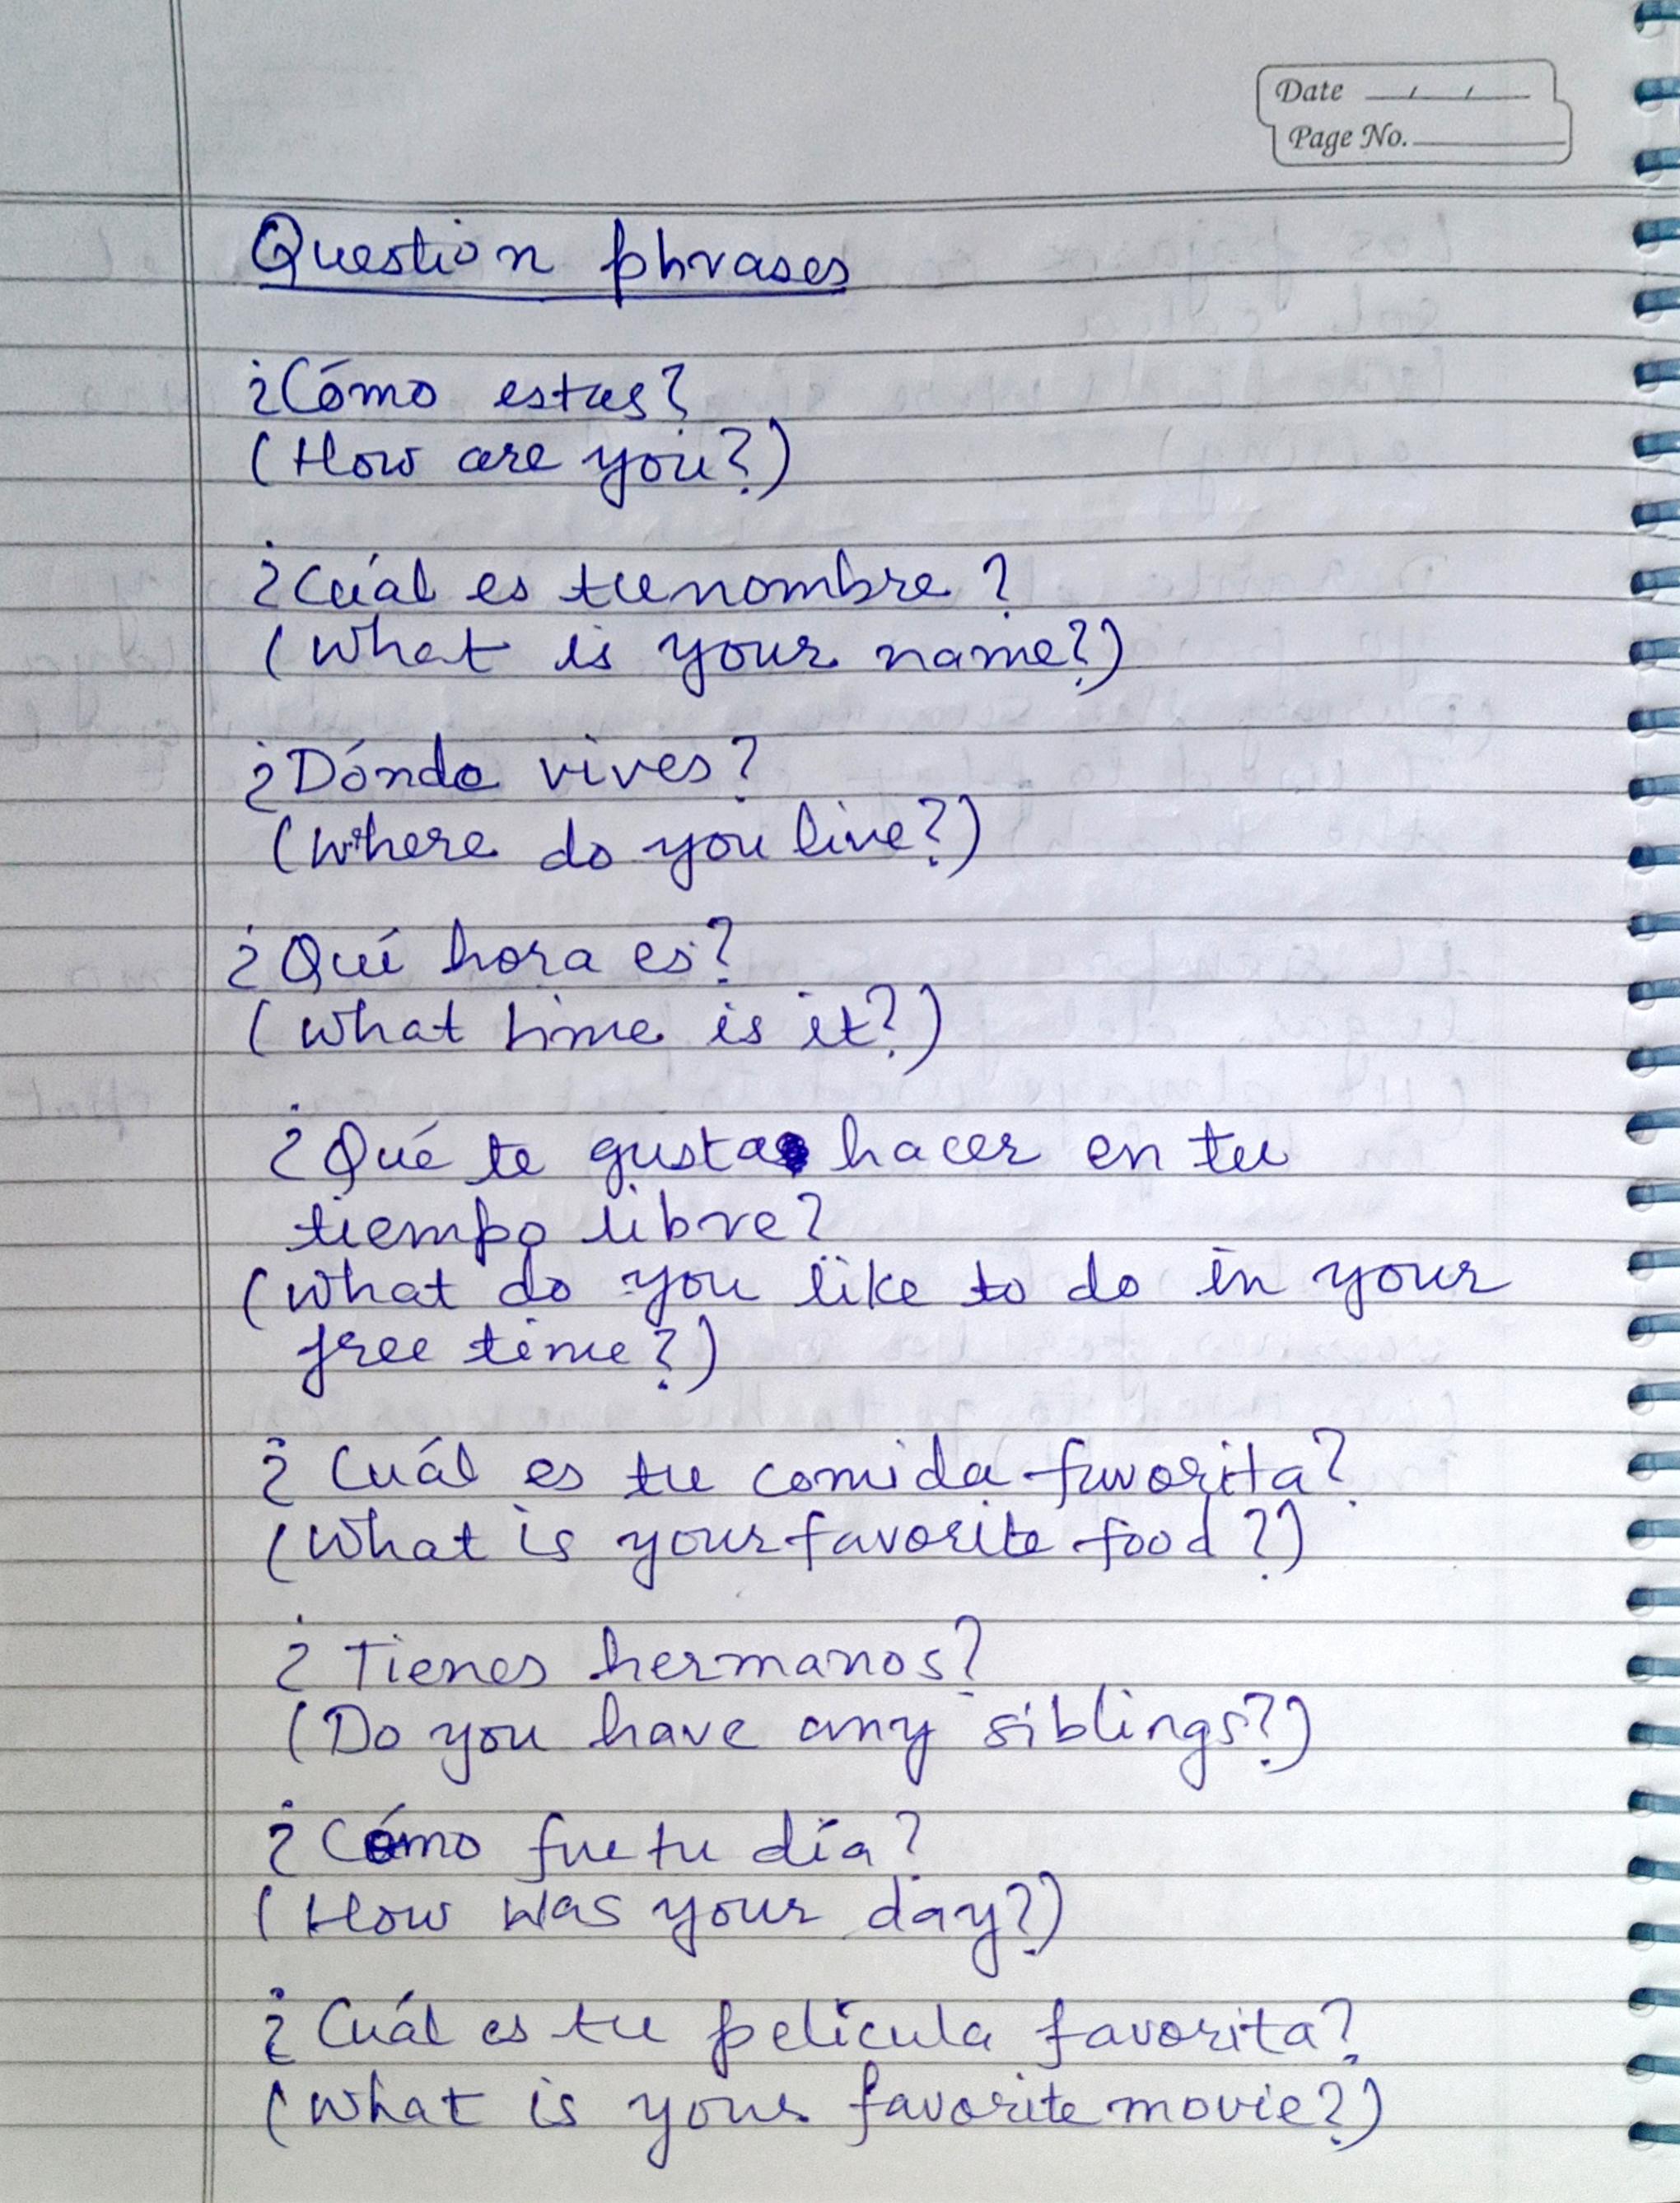 Date / /
Page No.
Question phrases
¿Cómo estas?
(How are you?)
¿Cuál es tu nombre?
(What is your name?)
¿Dónde vives?
(Where do you live?)
¿Qué hora es?
(What time is it?)
¿Qué te gusta hacer en tu
tiempo libre?
(What do you like to do in your
free time?)
¿Cuál es tu comida favorita?
(What is your favorite food?)
¿Tienes hermanos?
(Do you have any siblings?)
¿Cómo fue tu día?
(How was your day?)
¿Cuál es tu película favorita?
(What is your favorite movie?)